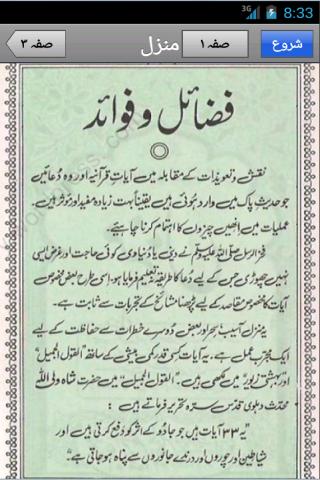 3G 8:33
صفحہ ۳ منزل صفحہ ۱ شروع
فضائل و فوائد
نقش و تعویذات کے مقابلہ میں آیاتِ قرآنیہ اور وہ دُعائیں
جو حدیثِ پاک میں وارد ہوئی ہیں یقیناً بہت زیادہ مفید اور مؤثر ہیں۔
عملیات میں انھیں چیزوں کا اہتمام کرنا چاہیئے۔
فخر الرسل صلی اللہ علیہ وسلم نے دینی یا دُنیاوی کوئی حاجت اور غرض ایسی
نہیں چھوڑی جس کے لیے دُعا کا طریقہ تعلیم نہ فرمایا ہو۔ اسی طرح بعض مخصوص
آیات کا مخصوص مقاصد کے لیے پڑھنا مشائخ کے تجربات سے ثابت ہے۔
یہ منزل آسیب، سحر اور بعض دُوسرے خطرات سے حفاظت کے لیے
ایک مجرب عمل ہے۔ یہ آیات کسی قدر کمی بیشی کے ساتھ "القول الجمیل"
اور "بہشتی زیور" میں لکھی ہیں۔ "القول الجمیل" میں حضرت شاہ ولی اللہ
محدث دہلوی قدس سرہٗ تحریر فرماتے ہیں :
"یہ ۳۳ آیات ہیں جو جادُو کے اثر کو دفع کرتی ہیں اور
شیاطین اور چوروں اور درندے جانوروں سے پناہ ہو جاتی ہے۔"